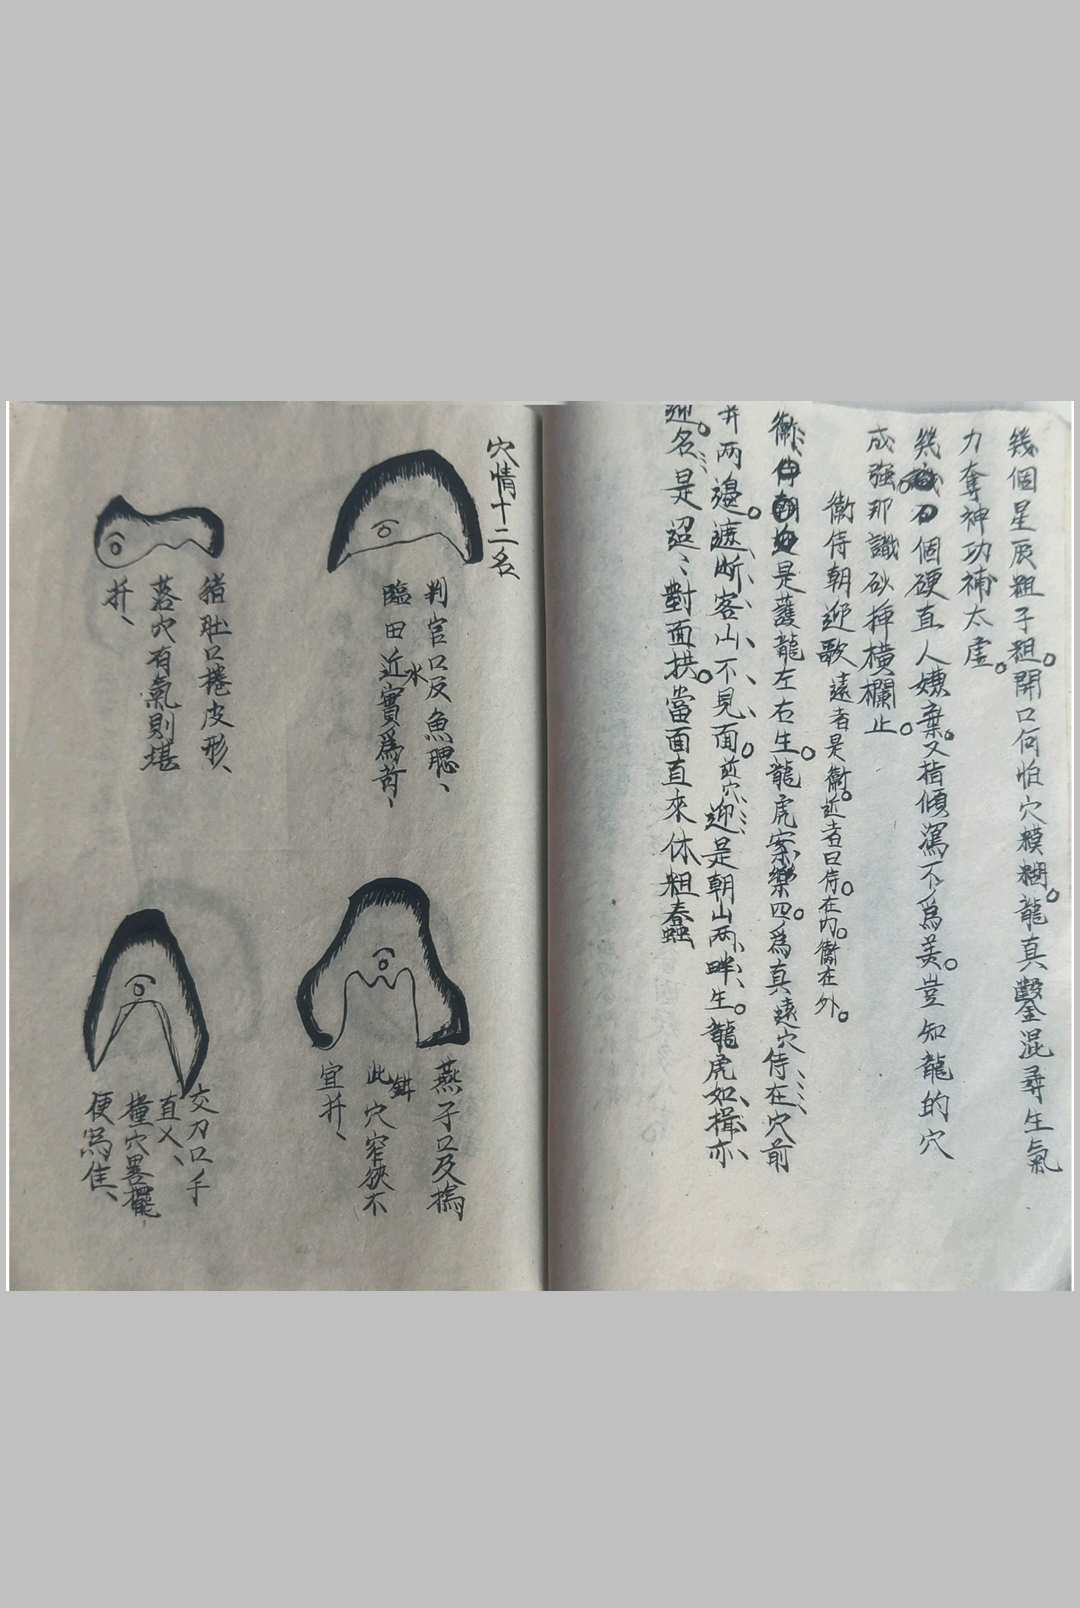 幾個星辰粗子粗。開口何怕穴糢糊。龍真鑿混尋生氣
力奪神功補太虛。
幾個硬直人嫌棄。又指傾瀉不爲美。豈知龍的穴
成强那識砂揷橫欄止。
衛侍朝迎歌 遠者是衛。近者曰侍。在內。衛在外。
衛是護龍左右生。龍虎案樂四爲真遠穴侍在穴前
并兩邊遮断客山不見面。近穴迎是朝山两畔生。龍虎如揖亦
迎名。是迢、對面拱。當面直來休粗蠢
穴情十二名
判官口反魚腮、
臨田近水實爲苛、
猪肚口捲皮形、
落穴有氣則堪
扦、
燕子口及撝
此穴窄狹不
宜扦、
交刀口手
直乂、
撞穴畧擺
便爲佳、